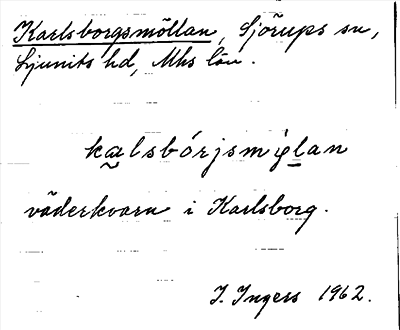 Karlsborgsmöllan, Sjörups sn,
Ljunits hd, Mhs län.
kalsbórjsmø̀lan
väderkvarn i Karlsborg.
I. Ingers 1962.